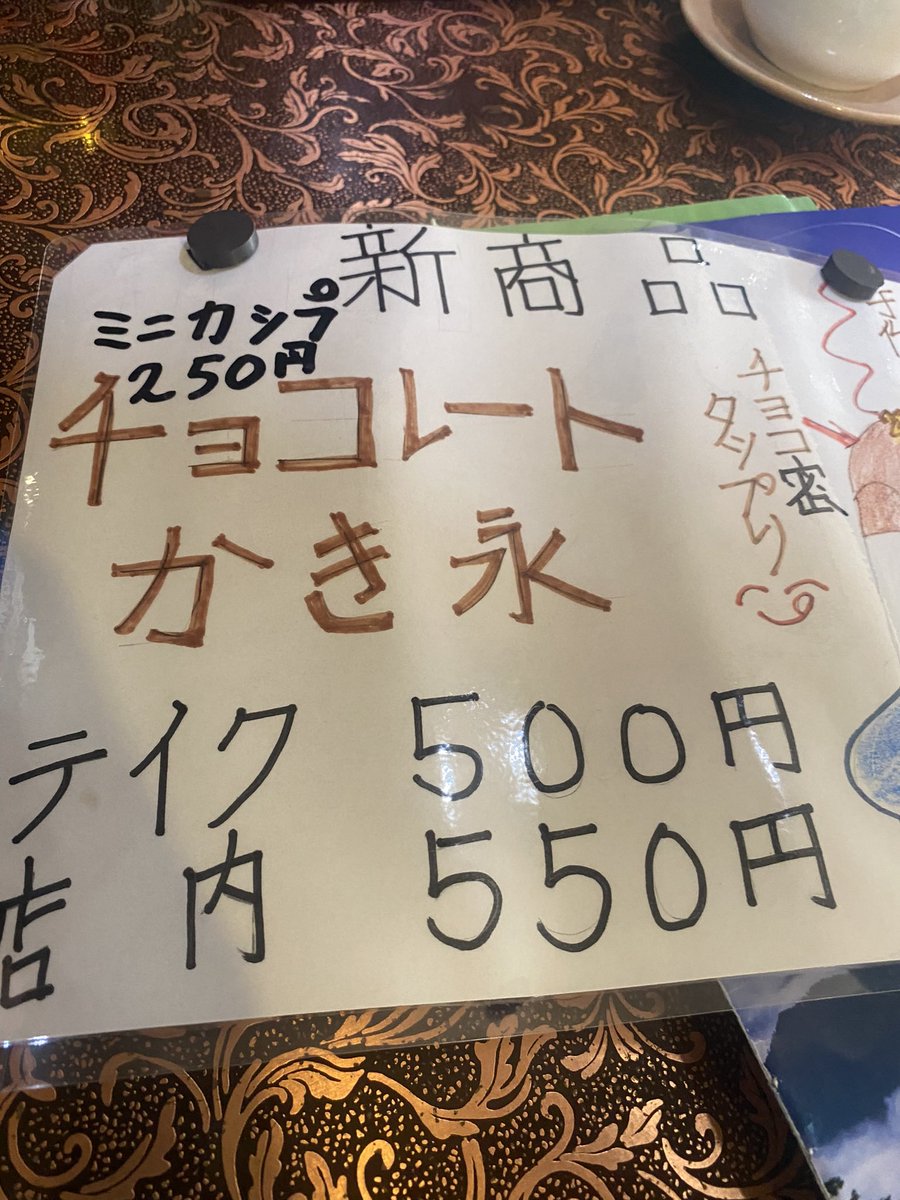 新商品
ミニカップ
250円
チョコレート
かき永
チョコ密
タップリ
テイク 500円
店内 550円